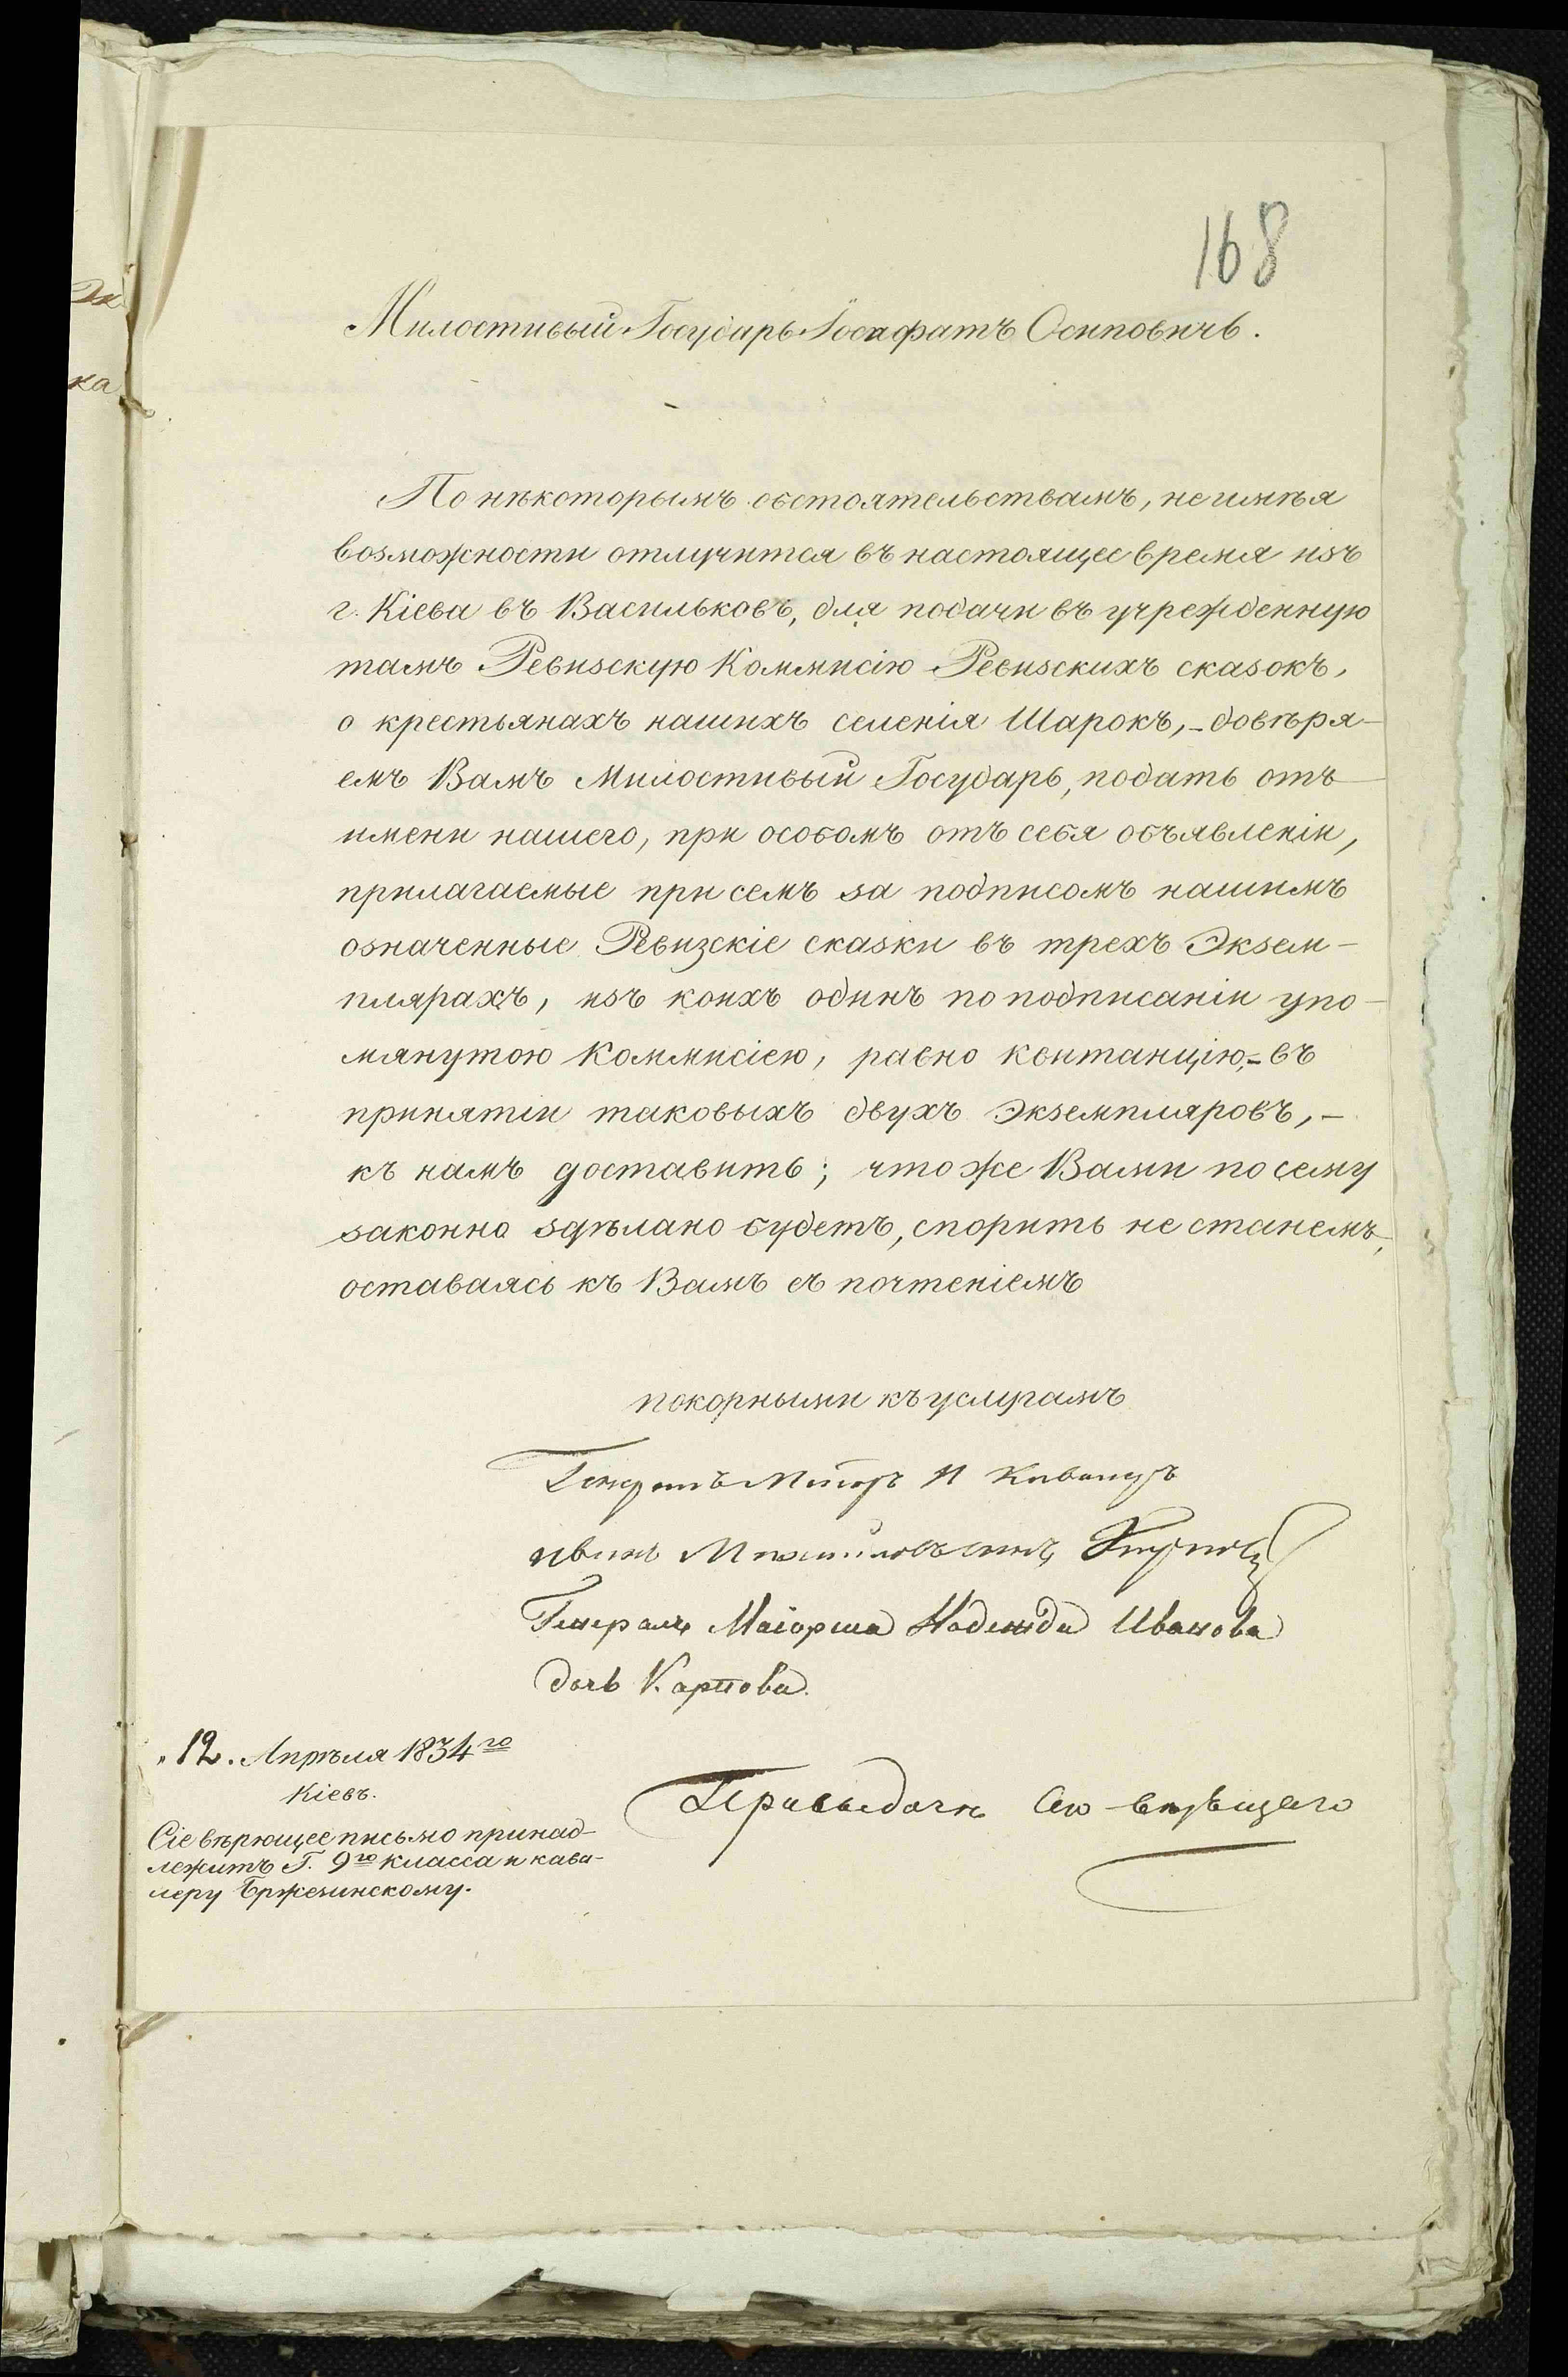 168
Эк
ка
Милостивый Государь Іосафатъ Осиповичъ.
По нѣкоторымъ обстоятельствамъ, не имѣя
возможности отлучится въ настоящее время изъ
г. Кіева въ Васильковъ, для подачи въ учрежденную
тамъ Ревизскую Коммисію Ревизскихъ сказокъ,
о крестьянахъ нашихъ селенія Шарокъ, - довѣря-
емъ Вамъ Милостивый Государь, подать отъ
имени нашего, при особомъ отъ себя объявленіи,
прилагаемые при семъ за подписомъ нашимъ
означенные Ревизскіе сказки въ трехъ Экзем-
плярахъ, изъ коихъ одинъ по подписаніи упо-
мянутою Коммисіею, равно квитанцію, - въ
принятіи таковыхъ двухъ Экземпляровъ, -
къ намъ доставить; что же Вами по сему
законно здѣлано будетъ, спорить не станемъ,
оставаясь къ Вамъ съ почтеніемъ
покорными къ услугамъ
Генералъ Маіоръ И Кавалеръ
Иванъ сынъ
Генералъ Маіорша Надежда Иванова
дочь Карпова.
"12. Апрѣля 1834го
Кіевъ.
Сіе вѣрющее письмо принад-
лежитъ Г. 9го класса и кава-
леру Бржезинскому.